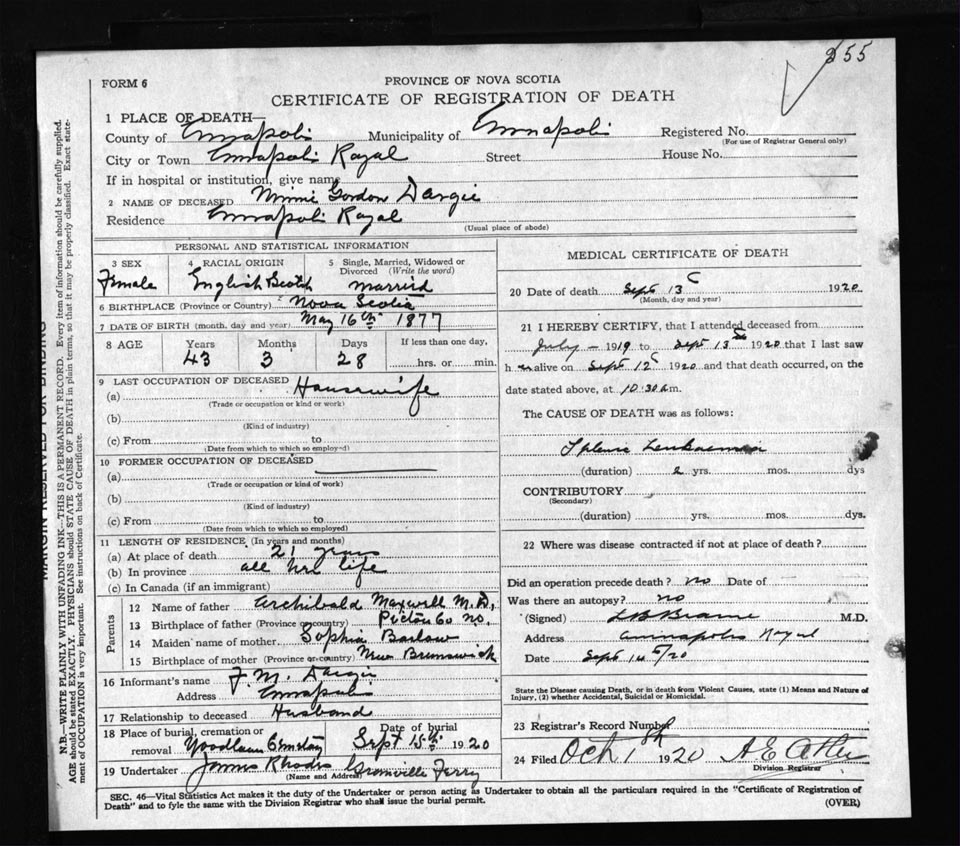 255
FORM 6
PROVINCE OF NOVA SCOTIA
CERTIFICATE OF REGISTRATION OF DEATH
1 PLACE OF DEATH—
County of Annapolis Municipality of Annapolis Registered No.
(For use of Registrar General only)
City or Town Annapolis Royal Street House No.
If in hospital or institution, give name
2 NAME OF DECEASED Minnie Gordon Dargie
Residence Annapolis Royal
(Usual place of abode)
PERSONAL AND STATISTICAL INFORMATION
3 SEX 4 RACIAL ORIGIN 5 Single, Married, Widowed or Divorced (Write the word)
Female English Scotch Married
6 BIRTHPLACE (Province or Country) Nova Scotia
7 DATE OF BIRTH (month, day and year) May 16th 1877
8 AGE Years Months Days If less than one day,
43 3 28 hrs. or min.
9 LAST OCCUPATION OF DECEASED
(a) Housewife
(Trade or occupation or kind or work)
(b)
(Kind of industry)
(c) From to
(Date from which to which so employed)
10 FORMER OCCUPATION OF DECEASED
(a)
(Trade or occupation or kind of work)
(b)
(Kind of industry)
(c) From to
(Date from which to which so employed)
11 LENGTH OF RESIDENCE (In years and months)
(a) At place of death 21 years
(b) In province all her life
(c) In Canada (if an immigrant)
Parents
12 Name of father Archibald Maxwell M.D.
13 Birthplace of father (Province or country) Pictou Co N.S.
14 Maiden name of mother Sophia Barlow
15 Birthplace of mother (Province or country) New Brunswick
16 Informant's name J. M. Dargie
Address Annapolis
17 Relationship to deceased Husband
18 Place of burial, cremation or removal Woodlawn Cemetery Date of burial Sept 15th 1920
19 Undertaker James Rhodes Granville Ferry
(Name and Address)
MEDICAL CERTIFICATE OF DEATH
20 Date of death Sept 13 1920
(Month, day and year)
21 I HEREBY CERTIFY, that I attended deceased from
July – 1919 to Sept 13 1920 that I last saw
her alive on Sept 12 1920 and that death occurred, on the
date stated above, at 10.30 a m.
The CAUSE OF DEATH was as follows:
Splenic Leukaemia
(duration) 2 yrs. mos. dys
CONTRIBUTORY
(Secondary)
(duration) yrs. mos. dys.
22 Where was disease contracted if not at place of death?
Did an operation precede death? no Date of
Was there an autopsy? no
(Signed) M.D.
Address Annapolis Royal
Date Sept 14/20
State the Disease causing Death, or in death from Violent Causes, state (1) Means and Nature of
Injury, (2) whether Accidental, Suicidal or Homicidal.
23 Registrar's Record Number
24 Filed Oct 8th 1920
Division Registrar
SEC. 46—Vital Statistics Act makes it the duty of the Undertaker or person acting as Undertaker to obtain all the particulars required in the "Certificate of Registration of
Death" and to fyle the same with the Division Registrar who shall issue the burial permit.
(OVER)
MARGIN RESERVED FOR BINDING
N.B.—WRITE PLAINLY, WITH UNFADING INK—THIS IS A PERMANENT RECORD. Every item of information should be carefully supplied.
AGE should be stated EXACTLY. PHYSICIANS should STATE CAUSE OF DEATH in plain terms, so that it may be properly classified. Exact state-
ment of OCCUPATION is very important. See instructions on back of Certificate.